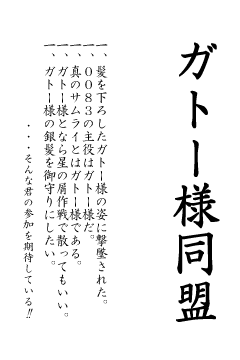 ガトー様同盟
一、髪を下ろしたガトー様の姿に撃墜された。
一、0083の主役はガトー様だ。
一、真のサムライとはガトー様である。
一、ガトー様となら星の屑作戦で散ってもいい。
一、ガトー様の銀髪を御守りにしたい。
・・・そんな君の参加を期待している!!